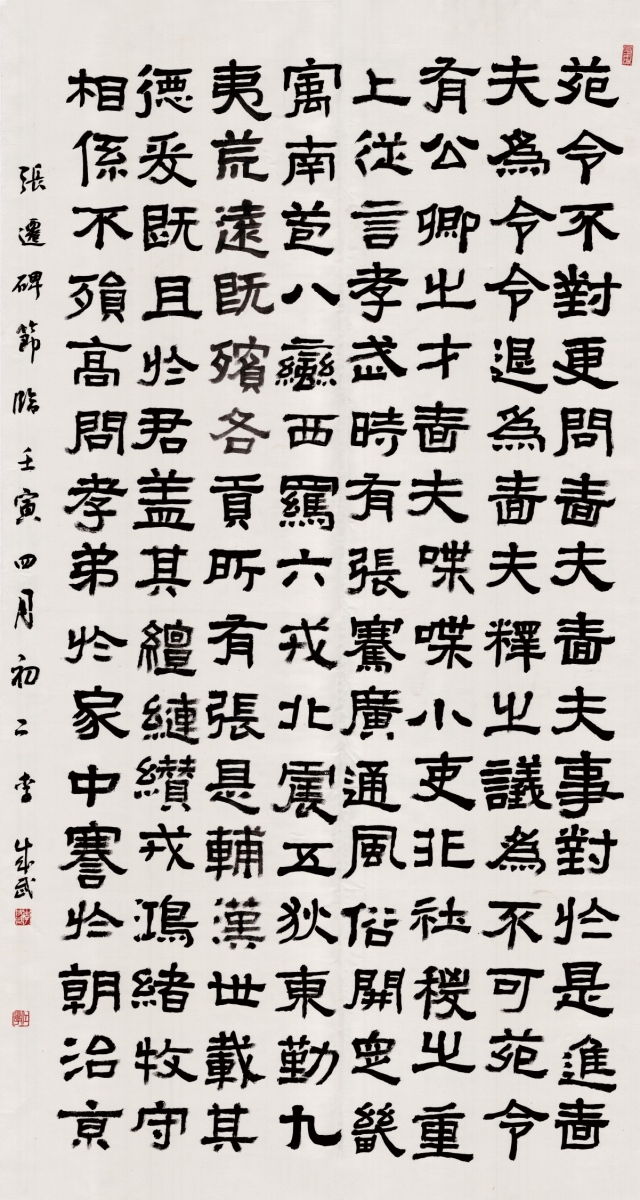 苑令不對更問嗇夫嗇夫事對於是進嗇
夫為令令退為嗇夫釋之議為不可苑令
有公卿之才嗇夫喋喋小吏非社稷之重
上從言孝武時有張騫廣通風俗開定畿
寓南苞八蠻西羈六戎北震五狄東勤九
夷荒遠既殯各貢所有張是輔漢世載其
德爰既且於君盖其繵縺纘戎鴻緒牧守
相係不殞高問孝弟於家中謇於朝治京
張遷碑節臨壬寅四月初二李成武